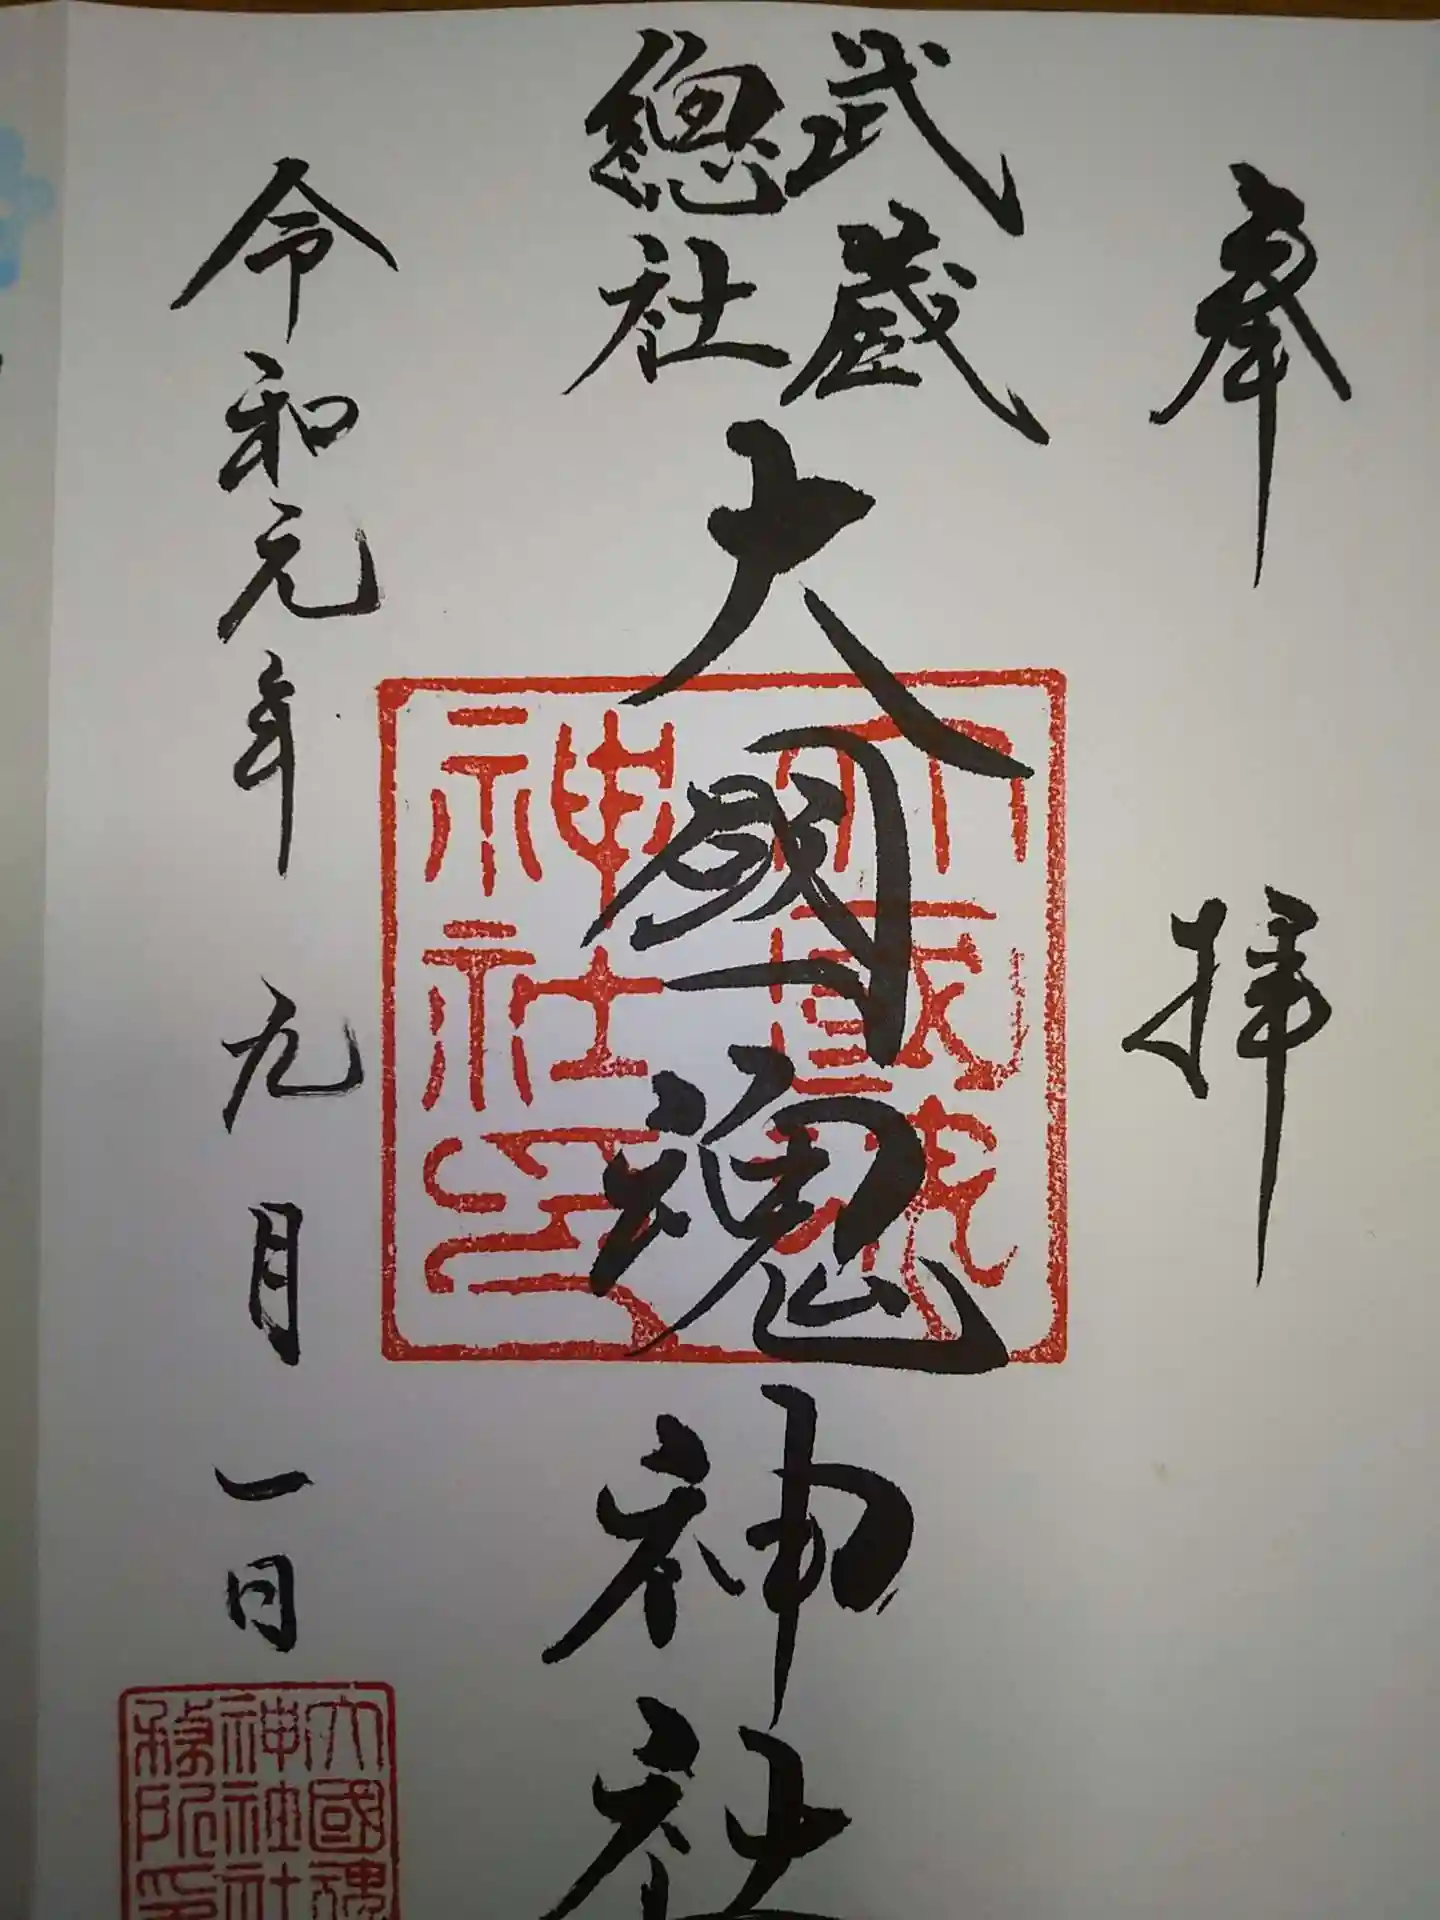 奉拝
武蔵
總社
大國魂神社
令和元年九月一日
大國魂
神社印
大國魂
神社社
務所印